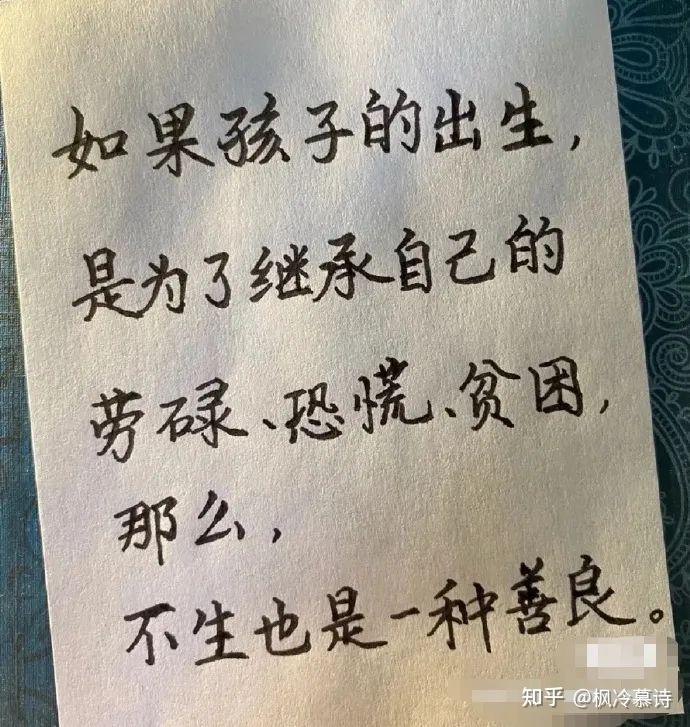 如果孩子的出生，
是为了继承自己的
劳碌、恐慌、贫困，
那么，
不生也是一种善良。
知乎 @枫冷慕诗